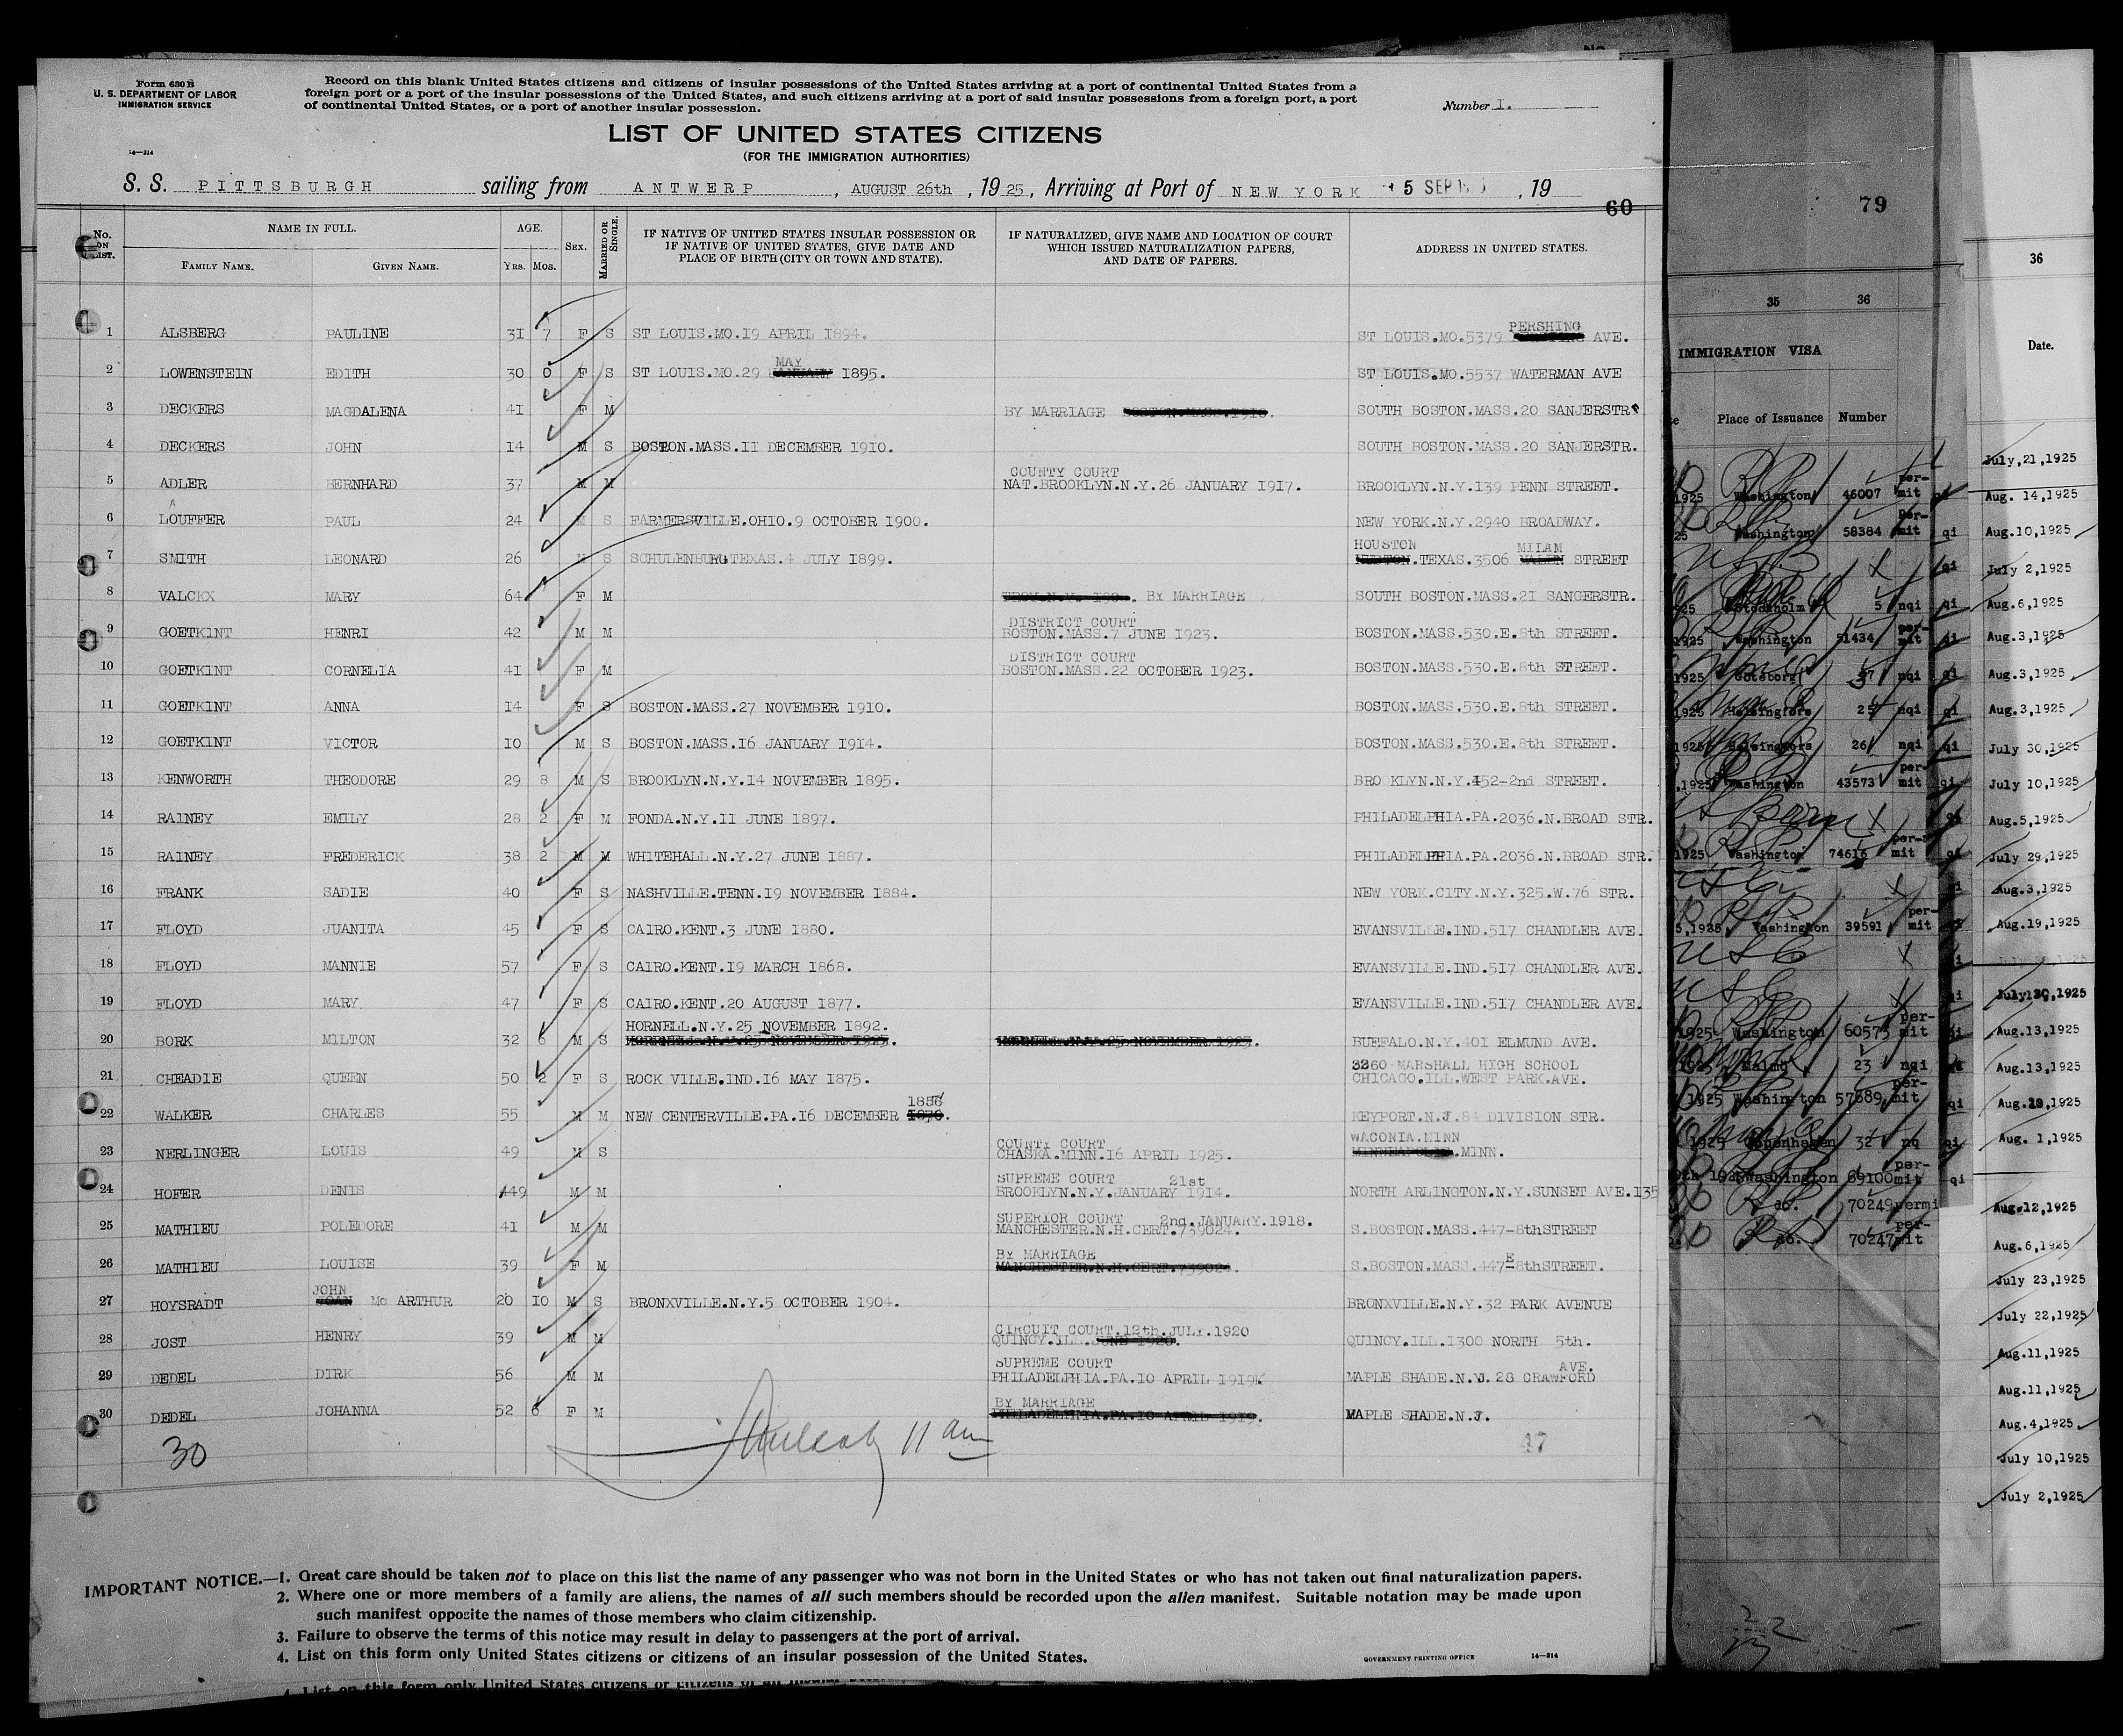 Form 630 B
U. S. DEPARTMENT OF LABOR
IMMIGRATION SERVICE
Record on this blank United States citizens and citizens of insular possessions of the United States arriving at a port of continental United States from a
foreign port or a port of the insular possessions of the United States, and such citizens arriving at a port of said insular possessions from a foreign port, a port
of continental United States, or a port of another insular possession.
Number I.
LIST OF UNITED STATES CITIZENS
(FOR THE IMMIGRATION AUTHORITIES)
14—314
S. S. PITTSBURGH sailing from ANTWERP, AUGUST 26th, 1925, Arriving at Port of NEW YORK 5 SEP, 19
60
No. ON LIST. NAME IN FULL. AGE. SEX. MARRIED OR SINGLE. IF NATIVE OF UNITED STATES INSULAR POSSESSION OR IF NATIVE OF UNITED STATES, GIVE DATE AND PLACE OF BIRTH (CITY OR TOWN AND STATE). IF NATURALIZED, GIVE NAME AND LOCATION OF COURT WHICH ISSUED NATURALIZATION PAPERS, AND DATE OF PAPERS. ADDRESS IN UNITED STATES.
FAMILY NAME. GIVEN NAME. YRS. MOS.
PERSHING
1 ALSBERG PAULINE 31 7 F S ST LOUIS.MO.19 APRIL 1894. ST LOUIS.MO.5379 AVE.
MAY
2 LOWENSTEIN EDITH 30 0 F S ST LOUIS.MO.29 JANUARY 1895. ST LOUIS.MO.5537 WATERMAN AVE
3 DECKERS MAGDALENA 41 F M BY MARRIAGE BOSTON.MASS.1910. SOUTH BOSTON.MASS.20 SANJERSTR.
4 DECKERS JOHN 14 M S BOSTON.MASS.11 DECEMBER 1910. SOUTH BOSTON.MASS.20 SANJERSTR.
COUNTY COURT
5 ADLER BERNHARD 37 M M NAT.BROOKLYN.N.Y.26 JANUARY 1917. BROOKLYN.N.Y.139 PENN STREET.
A
6 LOUFFER PAUL 24 M S FARMERSVILLE.OHIO.9 OCTOBER 1900. NEW YORK.N.Y.2940 BROADWAY.
HOUSTON MILAM
7 SMITH LEONARD 26 M S SCHULENBURG.TEXAS.4 JULY 1899. .TEXAS.3506 STREET
8 VALCKX MARY 64 F M . BY MARRIAGE SOUTH BOSTON.MASS.21 SANGERSTR.
DISTRICT COURT
9 GOETKINT HENRI 42 M M BOSTON.MASS.7 JUNE 1923. BOSTON.MASS.530.E.8th STREET.
DISTRICT COURT
10 GOETKINT CORNELIA 41 F M BOSTON.MASS.22 OCTOBER 1923. BOSTON.MASS.530.E.8th STREET.
11 GOETKINT ANNA 14 F S BOSTON.MASS.27 NOVEMBER 1910. BOSTON.MASS.530.E.8th STREET.
12 GOETKINT VICTOR 10 M S BOSTON.MASS.16 JANUARY 1914. BOSTON.MASS.530.E.8th STREET.
13 KENWORTH THEODORE 29 8 M S BROOKLYN.N.Y.14 NOVEMBER 1895. BRO KLYN.N.Y.452-2nd STREET.
14 RAINEY EMILY 28 2 F M FONDA.N.Y.11 JUNE 1897. PHILADELPHIA.PA.2036.N.BROAD STR.
15 RAINEY FREDERICK 38 2 M M WHITEHALL.N.Y.27 JUNE 1887. PHILADELPHIA.PA.2036.N.BROAD STR.
16 FRANK SADIE 40 F S NASHVILLE.TENN.19 NOVEMBER 1884. NEW YORK.CITY.N.Y.325.W.76 STR.
17 FLOYD JUANITA 45 F S CAIRO.KENT.3 JUNE 1880. EVANSVILLE.IND.517 CHANDLER AVE.
18 FLOYD MANNIE 57 F S CAIRO.KENT.19 MARCH 1868. EVANSVILLE.IND.517 CHANDLER AVE.
19 FLOYD MARY 47 F S CAIRO.KENT.20 AUGUST 1877. EVANSVILLE.IND.517 CHANDLER AVE.
HORNELL.N.Y.25 NOVEMBER 1892.
20 BORK MILTON 32 6 M S BUFFALO.N.Y.401 ELMUND AVE.
3260 MARSHALL HIGH SCHOOL
21 CHEADIE QUEEN 50 2 F S ROCK VILLE.IND.16 MAY 1875. CHICAGO.ILL.WEST PARK.AVE.
22 WALKER CHARLES 55 M M NEW CENTERVILLE.PA.16 DECEMBER 1870. KEYPORT.N.J.84 DIVISION STR.
COUNTY COURT WACONIA.MINN
23 NERLINGER LOUIS 49 M S CHASKA.MINN.16 APRIL 1925. MINNEAPOLIS.MINN.
SUPREME COURT 21st
24 HOFER DENIS 49 M M BROOKLYN.N.Y.JANUARY 1914. NORTH ARLINGTON.N.Y.SUNSET AVE.135
SUPERIOR COURT 2nd.JANUARY.1918.
25 MATHIEU POLEDORE 41 M M MANCHESTER.N.H.CERT.739024. S.BOSTON.MASS.447-8thSTREET
BY MARRIAGE E
26 MATHIEU LOUISE 39 F M MANCHESTER.N.H.CERT.739024. S.BOSTON.MASS.447-8thSTREET.
JOHN
27 HOYSRADT JOAN Mc ARTHUR 20 10 M S BRONXVILLE.N.Y.5 OCTOBER 1904. BRONXVILLE.N.Y.32 PARK AVENUE
CIRCUIT COURT.12th.JULY.1920
28 JOST HENRY 39 M M QUINCY.ILL.JUNE 1920. QUINCY.ILL.1300 NORTH 5th.
SUPREME COURT AVE.
29 DEDEL DIRK 56 M M PHILADELPHIA.PA.10 APRIL 1919 MAPLE SHADE.N.J.28 CRAWFORD
BY MARRIAGE
30 DEDEL JOHANNA 52 6 F M PHILADELPHIA.PA.10 APRIL 1919. MAPLE SHADE.N.J.
30 11 am 47
IMPORTANT NOTICE.—1. Great care should be taken not to place on this list the name of any passenger who was not born in the United States or who has not taken out final naturalization papers.
2. Where one or more members of a family are aliens, the names of all such members should be recorded upon the alien manifest. Suitable notation may be made upon
such manifest opposite the names of those members who claim citizenship.
3. Failure to observe the terms of this notice may result in delay to passengers at the port of arrival.
4. List on this form only United States citizens or citizens of an insular possession of the United States.
GOVERNMENT PRINTING OFFICE 14—314
4. List on this form only United States citizens or citizens of an
79
35 36
IMMIGRATION VISA
Place of Issuance Number
1925 Washington 46007 permit qi
Washington 58384 permit qi
qi
Stockholm 5 nqi qi
1925 Washington 51434 permit qi
1925 Goteborg 37 nqi qi
1925 Helsingfors 25 nqi qi
1925 Helsingfors 26 nqi qi
1925 Washington 43573 permit qi
qi
1925 Washington 74616 permit qi
5,1925 Washington 39591 permit
1925 Washington 60573 permit
Malmo 23 nqi
1925 Washington 57689 permit qi
1925 Copenhagen 32 nq qi
1925 Washington 69100 permit qi
do. 70249 permi
do. 70247 permit
36
Date.
July,21,1925
Aug. 14,1925
Aug.10,1925
July 2,1925
Aug.6,1925
Aug.3,1925
Aug.3,1925
Aug.3,1925
July 30,1925
July 10,1925
Aug.5,1925
July 29,1925
Aug.3,1925
Aug.19,1925
July 30,1925
Aug.13,1925
Aug.13,1925
Aug. 1,1925
Aug.12,1925
Aug.6,1925
July 23,1925
July 22,1925
Aug.11,1925
Aug.11,1925
Aug.4,1925
July 10,1925
July 2,1925